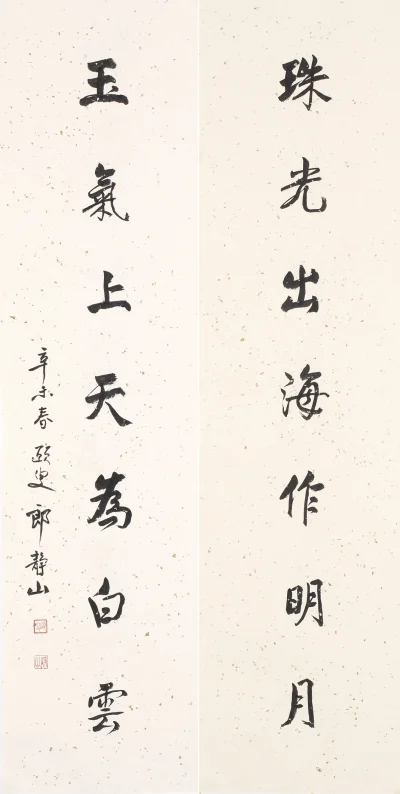 珠光出海作明月
玉氣上天為白雲
辛未春 郎靜山